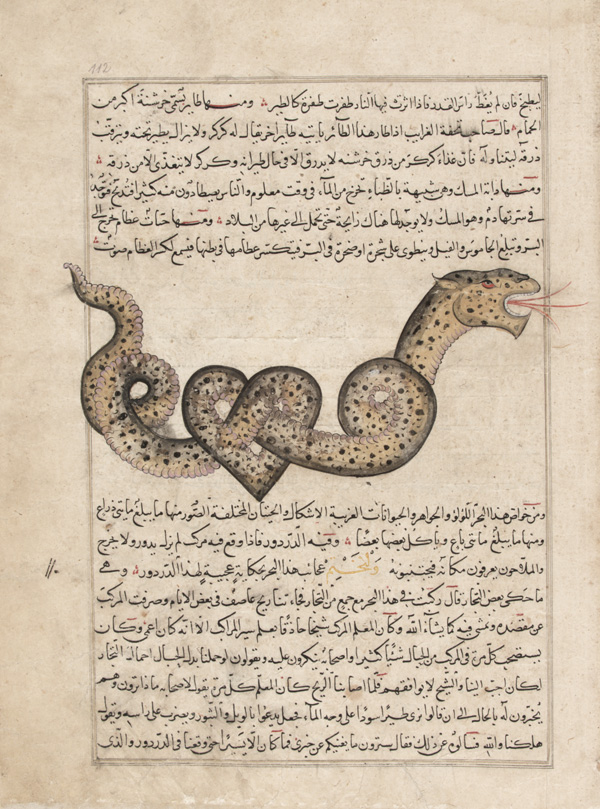 112
ليطبخ فان لم يغط راس القدر فاذا اثرت فيها النار طفرت طفرة كالطير ومنها طاير يسمى خرشنة اكبر من
الحمام قال صاحب تحفة الغرايب اذا طار هذا الطائر ياتيه طاير اخر يقال له كركر ولا يزال يطير تحته ويترقب
ذرقه ليتناوله فان غذاء كركر من ذرق خرشنه لا يذرق الا في حال طيرانه وكركر لا يتغذى الا من ذرقه
ومنها دابة المسك وهي شبيهة بالظباء تخرج من الماء في وقت معلوم والناس يصطادون منه كثيرا فتذبح فيوجد
في سرتها دم وهو المسك ولا يوجد لها هناك رايحة حتى تحمل الى غيرها من البلاد ومنها حيات عظام تخرج الى
البر وتبلع الجاموس والفيل وينطوى على شجرة او صخرة في البر فيكسر عظامها في بطنها فيسمع لكسر العظام صوت
ومن خواص هذا البحر اللؤلؤ والجواهر والحيوانات الغريبة الاشكال والحيتان المختلفة الصور منها ما يبلغ مايتى ذراع
ومنها ما يبلغ مائتى باع وياكل بعضها بعضا وفيه الدردور فاذا وقع فيه مركب لم يزل يدور ولا يخرج
والملاحون يعرفون مكانه فيجتنبونه ولنختم عجايب هذا البحر بحكاية عجيبة لهذا الدردور وهي
ما حكى بعض التجار قال ركبت في هذا البحر مع جمع من التجار فجاءتنا ريح عاصف في بعض الايام وصرفت المركب
عن مقصده ونمشي فيه كما يشاء الله وكان المعلم المركب شيخا حاذقا يعلم سير المراكب الا انه كان اعمى وكان
يستصحب كل مرة في المركب من الحبال شيئا كثيرا واصحابه ينكرون عليه ويقولون لو حملنا بدل الحبال احمال التجار
لكان اجرب لنا والشيخ لا يوافقهم فلما اصابنا الريح كان المعلم كل مرة يقول لاصحابه ماذا ترون وهم
يخبرون له بالحال الى ان قالوا نرى طيرا سودا على وجه الماء فجعل يدعوا بالويل والثبور ويضرب على راسه ويقول
هلكنا والله فسالوه عن ذلك فقال سترون ما يغنيكم عن خبرى فما كان الا يسيرا حتى وقعنا في الدردور والذى